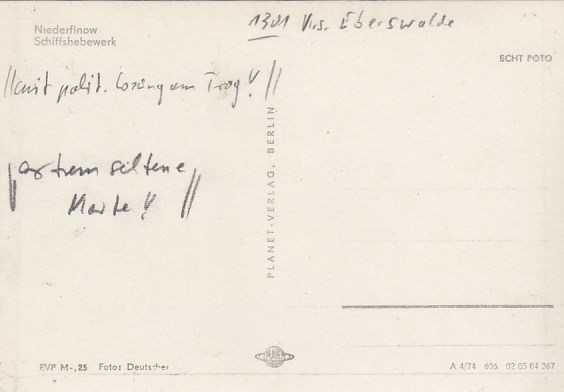 Niederfinow
Schiffshebewerk
1301 Krs. Eberswalde
ECHT FOTO
//mit polit. Losung am Trog!!//
extrem seltene
Karte!! //
PLANET-VERLAG, BERLIN
EVP M-,25 Foto: Deutscher
A 4/74 606 02 05 04 367